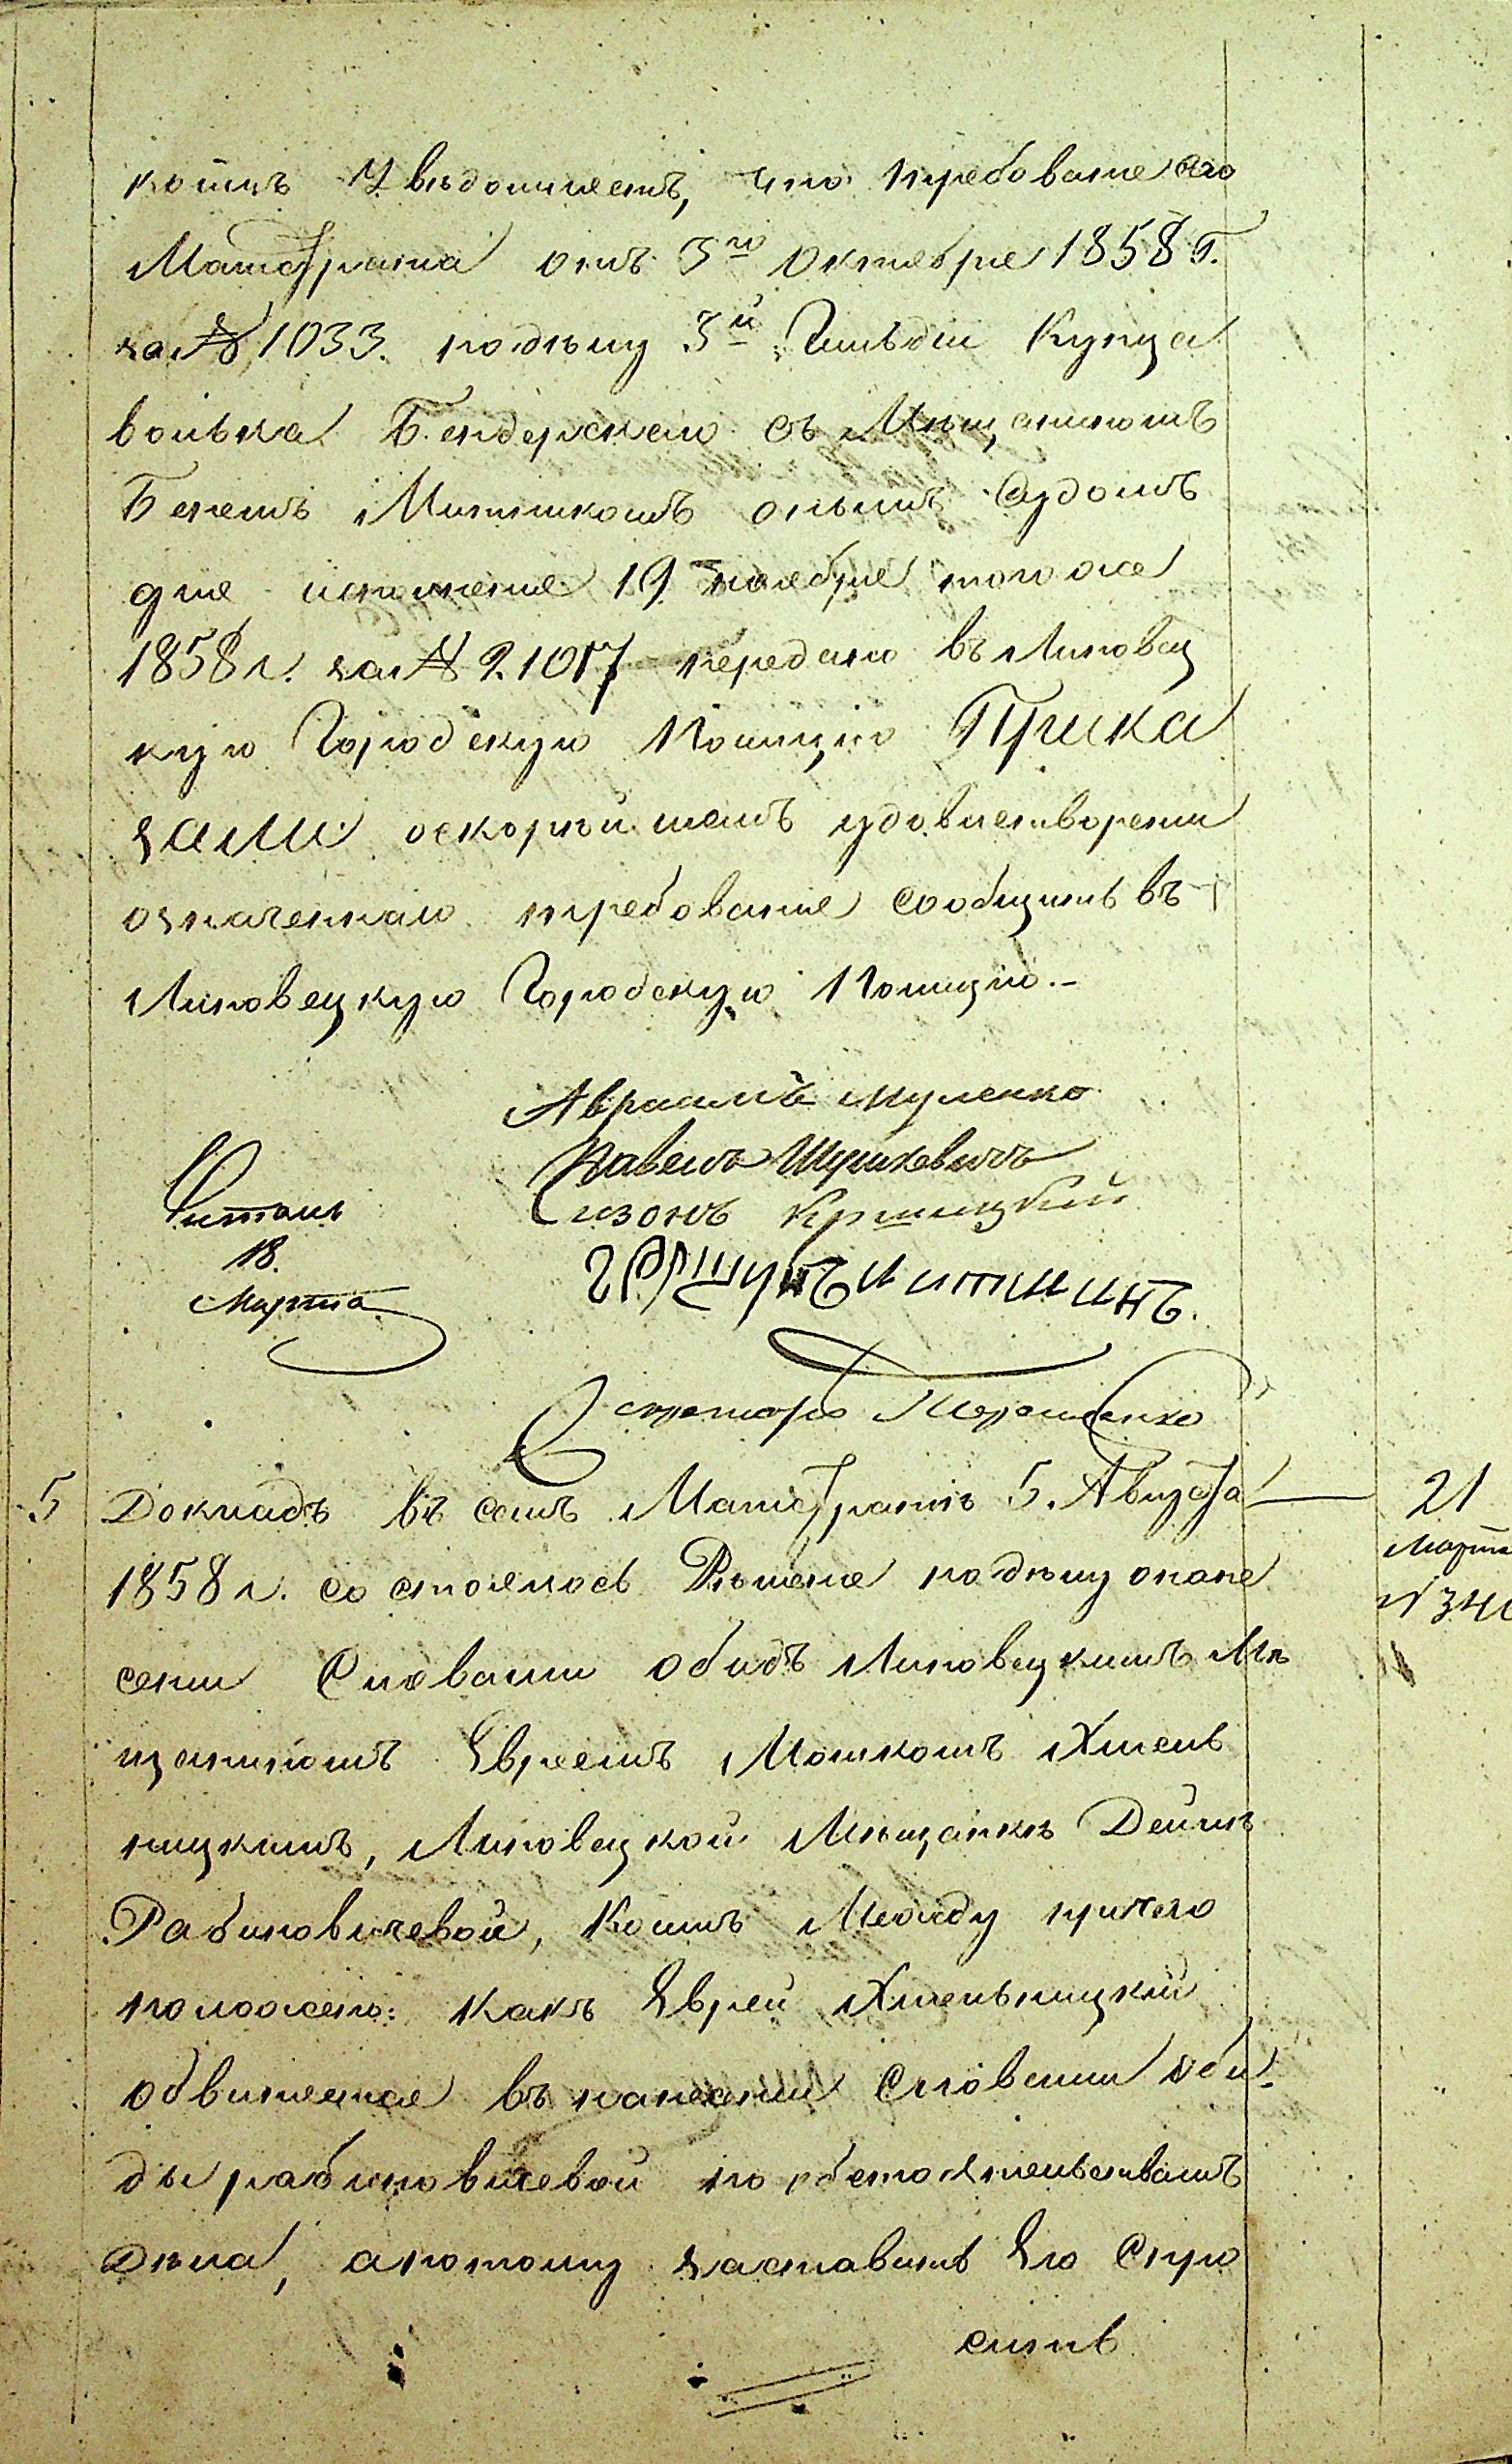 коимъ Увѣдомляетъ, что требованіе его
Магистрата отъ 3го Октября 1858 г.
за № 1033. по дѣлу 3й Гильдіи Купца
Волька Бендерскаго съ Мѣщаниномъ
Бенемъ онымъ Судомъ
для исполненія 19 ноября того же
1858 г. за № 21017 передано въ Липовец
кую Городскую Полицію Прика
зали: о скорѣйшемъ удовлетвореніи
означеннаго требованія сообщить въ
Липовецкую Городскую Полицію.-
Авраамъ Муленко
Павелъ Шушкевичъ
Сизонъ Крыницкій
Читалъ
18.
Марта
Секретарь Терещенко
5 Докладъ въ семъ Магистратѣ 5. Августа — 21
Марта
№ 340
1858 г. состоялось Рѣшеніе по дѣлу о нане
сеніи Словами обидъ Липовецкимъ Мѣ
щаниномъ Евреемъ Мошкомъ Хмель
ницкимъ, Липовецкой Мѣщанкѣ Дейлѣ
Рабиновичевой, Коимъ Между прочего
положено: Какъ Еврей Хмельницкій
обвиняется въ нанесеніи Словами оби
ды рабиновичевой по обстоятельствамъ
Дѣла, а потому заставить Его Спро
сить